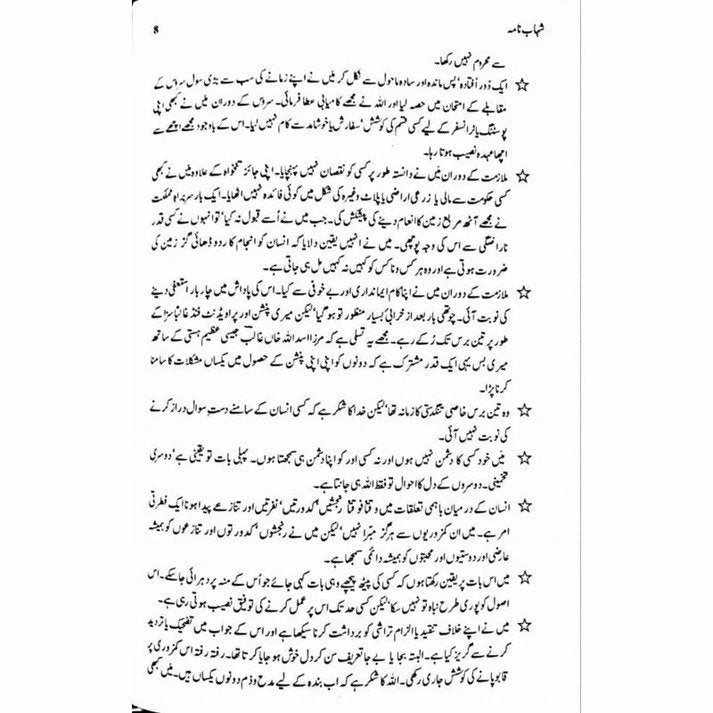 شہاب نامہ 8
سے محروم نہیں رکھا۔
☆ ایک دُور اُفتادہ‘ پس ماندہ اور سادہ ماحول سے نکل کر میَں نے اپنے زمانے کی سب سے بڑی سول سروس کے
مقابلے کے امتحان میں حصہ لیا اور اللہ نے مجھے کامیابی عطا فرمائی۔ سروس کے دوران میَں نے کبھی اپنی
پوسٹنگ یا ٹرانسفر کے لیے کسی قسم کی کوشش‘ سفارش یا خوشامد سے کام نہیں لیا۔ اس کے باوجود مجھے اچھے سے
اچھا عہدہ نصیب ہوتا رہا۔
☆ ملازمت کے دوران میَں نے دانستہ طور پر کسی کو نقصان نہیں پہنچایا۔ اپنی جائز تنخواہ کے علاوہ میَں نے کبھی
کسی حکومت سے مالی یا زرعی اراضی یا پلاٹ وغیرہ کی شکل میں کوئی فائدہ نہیں اٹھایا۔ ایک بار سربراہِ مملکت
نے مجھے آٹھ مربع زمین کا انعام دینے کی پیشکش کی۔ جب میں نے اُسے قبول نہ کیا‘ تو انہوں نے کسی قدر
ناراضگی سے اس کی وجہ پوچھی۔ میں نے انہیں یقین دلایا کہ انسان کو انجام کار دو ڈھائی گز زمین کی
ضرورت ہوتی ہے اور وہ ہر کس و ناکس کو کہیں نہ کہیں مل ہی جاتی ہے۔
☆ ملازمت کے دوران میں نے اپنا کام ایمانداری اور بے خوفی سے کیا۔ اس کی پاداش میں چار بار استعفیٰ دینے
کی نوبت آئی۔ چوتھی بار بعد از خرابیٔ بسیار منظور تو ہو گیا‘ لیکن میری پنشن اور پراویڈنٹ فنڈ غالباً سزا کے
طور پر تین برس تک رُکے رہے۔ مجھے یہ تسلی ہے کہ مرزا اسد اللہ خاں غالبؔ جیسی عظیم ہستی کے ساتھ
میری بس یہی ایک قدر مشترک ہے کہ دونوں کو اپنی اپنی پنشن کے حصول میں یکساں مشکلات کا سامنا
کرنا پڑا۔
☆ وہ تین برس خاصی تنگدستی کا زمانہ تھا‘ لیکن خدا کا شکر ہے کہ کسی انسان کے سامنے دستِ سوال دراز کرنے
کی نوبت نہیں آئی۔
☆ میَں خود کسی کا دشمن نہیں ہوں اور نہ کسی اور کو اپنا دشمن ہی سمجھتا ہوں۔ پہلی بات تو یقینی ہے‘ دوسری
تخمینی۔ دوسروں کے دل کا احوال تو فقط اللہ ہی جانتا ہے۔
☆ انسان کے درمیان باہمی تعلقات میں وقتاً فوقتاً رنجشیں‘ کدورتیں‘ نفرتیں اور تنازعے پیدا ہونا ایک فطرتی
امر ہے۔ میں ان کمزوریوں سے ہرگز مبّرا نہیں‘ لیکن میں نے رنجشوں‘ کدورتوں اور تنازعوں کو ہمیشہ
عارضی اور دوستیوں اور محبتوں کو ہمیشہ دائمی سمجھا ہے۔
☆ میں اس بات پر یقین رکھتا ہوں کہ کسی کی پیٹھ پیچھے وہی بات کہی جائے جو اُس کے منہ پر دہرائی جا سکے۔ اس
اصول کو پوری طرح نباہ تو نہیں سکا‘ لیکن کسی حد تک اس پر عمل کرنے کی توفیق نصیب ہوتی رہی ہے۔
☆ میں نے اپنے خلاف تنقید یا الزام تراشی کو برداشت کرنا سیکھا ہے اور اس کے جواب میں تضحیک یا تردید
کرنے سے گریز کیا ہے۔ البتہ بجا یا بے جا تعریف سن کر دل خوش ہو جایا کرتا تھا۔ رفتہ رفتہ اس کمزوری پر
قابو پانے کی کوشش جاری رکھی۔ اللہ کا شکر ہے کہ اب بندہ کے لیے مدح و ذم دونوں یکساں ہیں۔ میَں کبھی